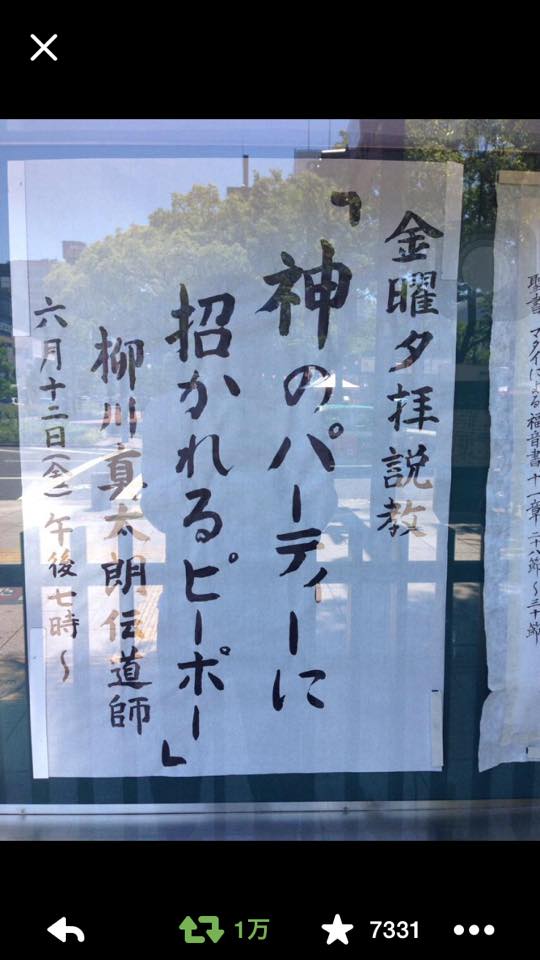 聖書 マタイによる福音書十一章二八節〜三十節
金曜夕拝説教
「神のパーティーに
招かれるピーポー」
柳川真太朗伝道師
六月十二日(金)午後七時〜
1万
7331